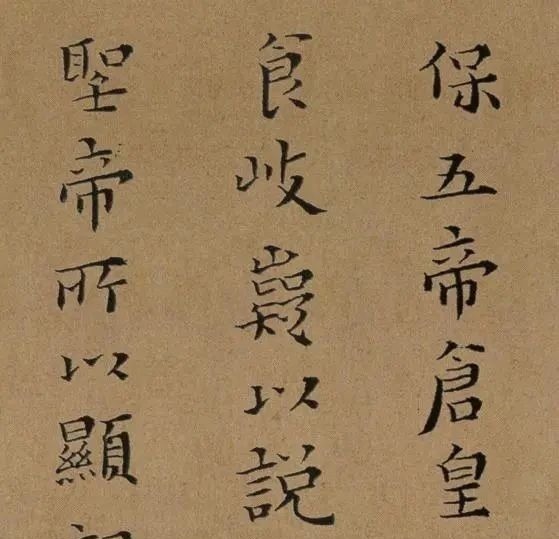 保五帝倉皇
食岐嶷以説
聖帝所以顯